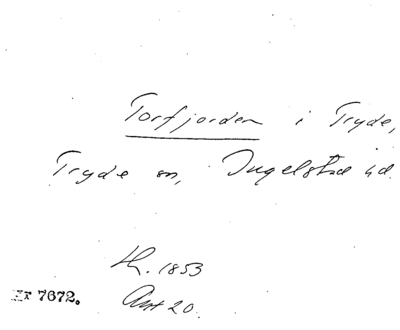 Torfjorden i Tryde,
Tryde sn, Ingelstad hd.
Lh. 1853
Akt 20.
Nr 7672.